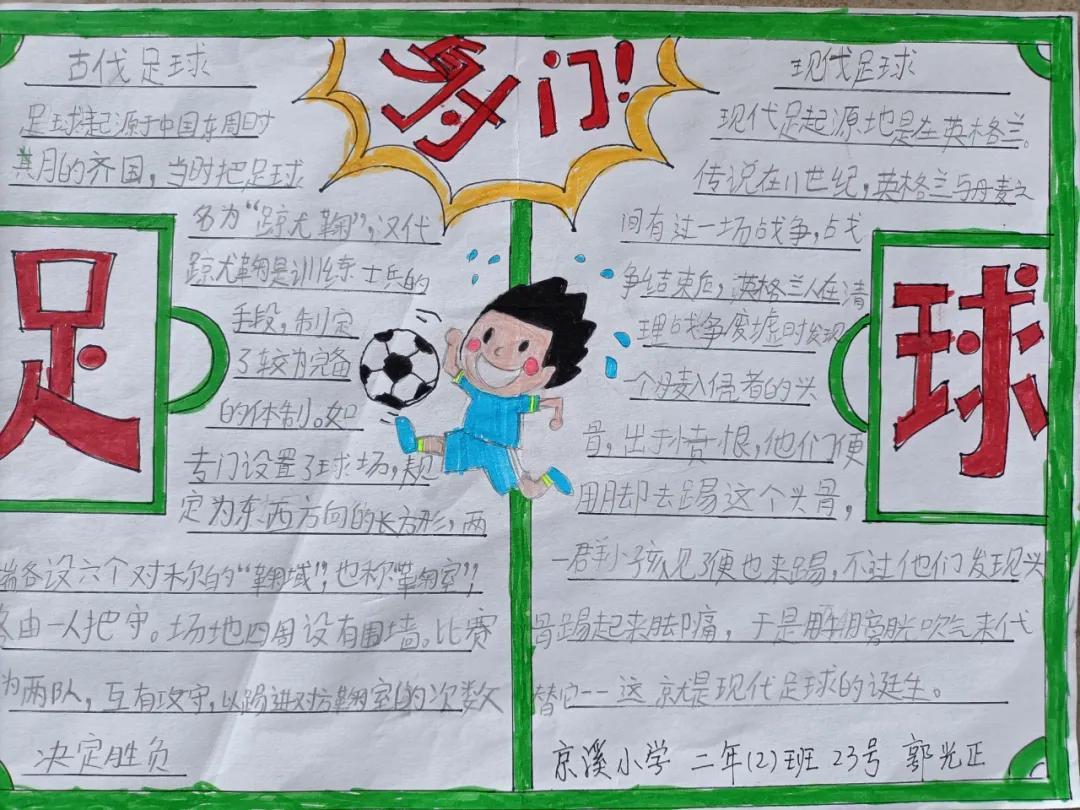 射门!
足
球
古代足球
足球起源于中国东周时
其月的齐国，当时把足球
名为“踢尤鞠”，汉代
踢尤鞠是训练士兵的
手段，制定
了较为完备
的体制。如
专门设置了球场，规
定为东西方向的长方形，两
端各设六个对称的“鞠域”，也称“鞠室”，
各由一人把守。场地四周设有围墙。比赛
为两队，互有攻守，以踢进对方鞠室的次数
决定胜负
现代足球
现代足起源地是在英格兰。
传说在11世纪，英格兰与丹麦之
间有过一场战争，战
争结束后，英格兰人在清
理战争废墟时发现
一个丹麦入侵者的头
骨，出于愤恨，他们便
用脚去踢这个头骨，
一群小孩见了便也来踢，不过他们发现头
骨踢起来脚痛，于是用牛膀胱吹气来代
替它--这就是现代足球的诞生。
京溪小学 二年(2)班 23号 郭光正